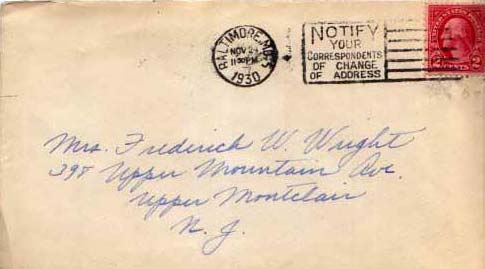 BALTIMORE, MD.
NOV 2
11 30 PM
1930
NOTIFY
YOUR
CORRESPONDENTS
OF CHANGE
OF ADDRESS
UNITED STATES POSTAGE
2 CENTS 2
Mrs. Frederick W. Wright
398 Upper Mountain Ave.
Upper Montclair
N. J.